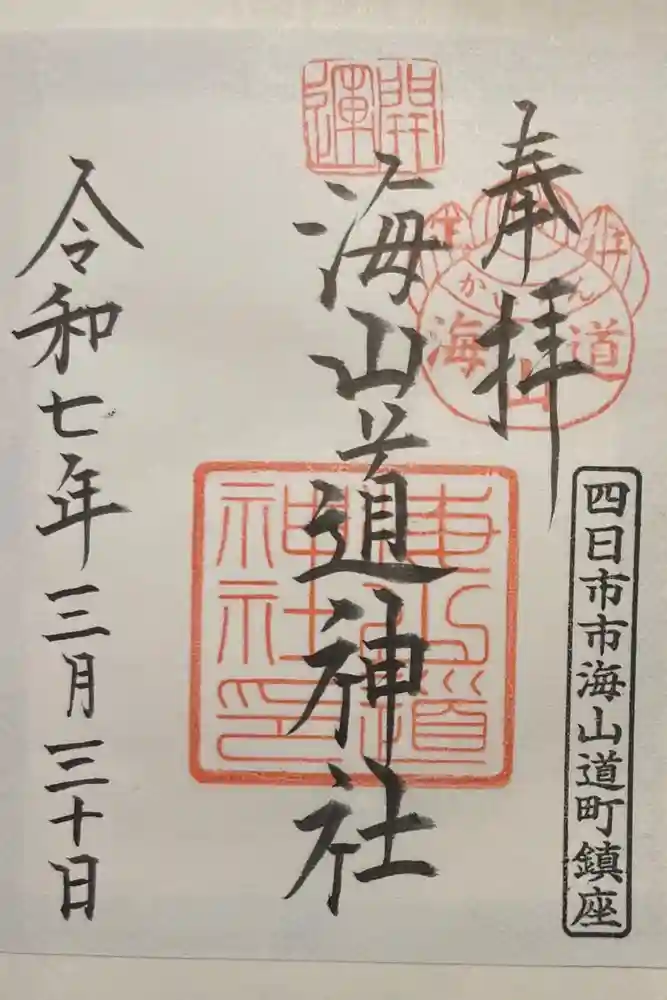 奉拝
四日市市海山道町鎮座
開運
海山道神社
海山道
神社印
令和七年三月三十日